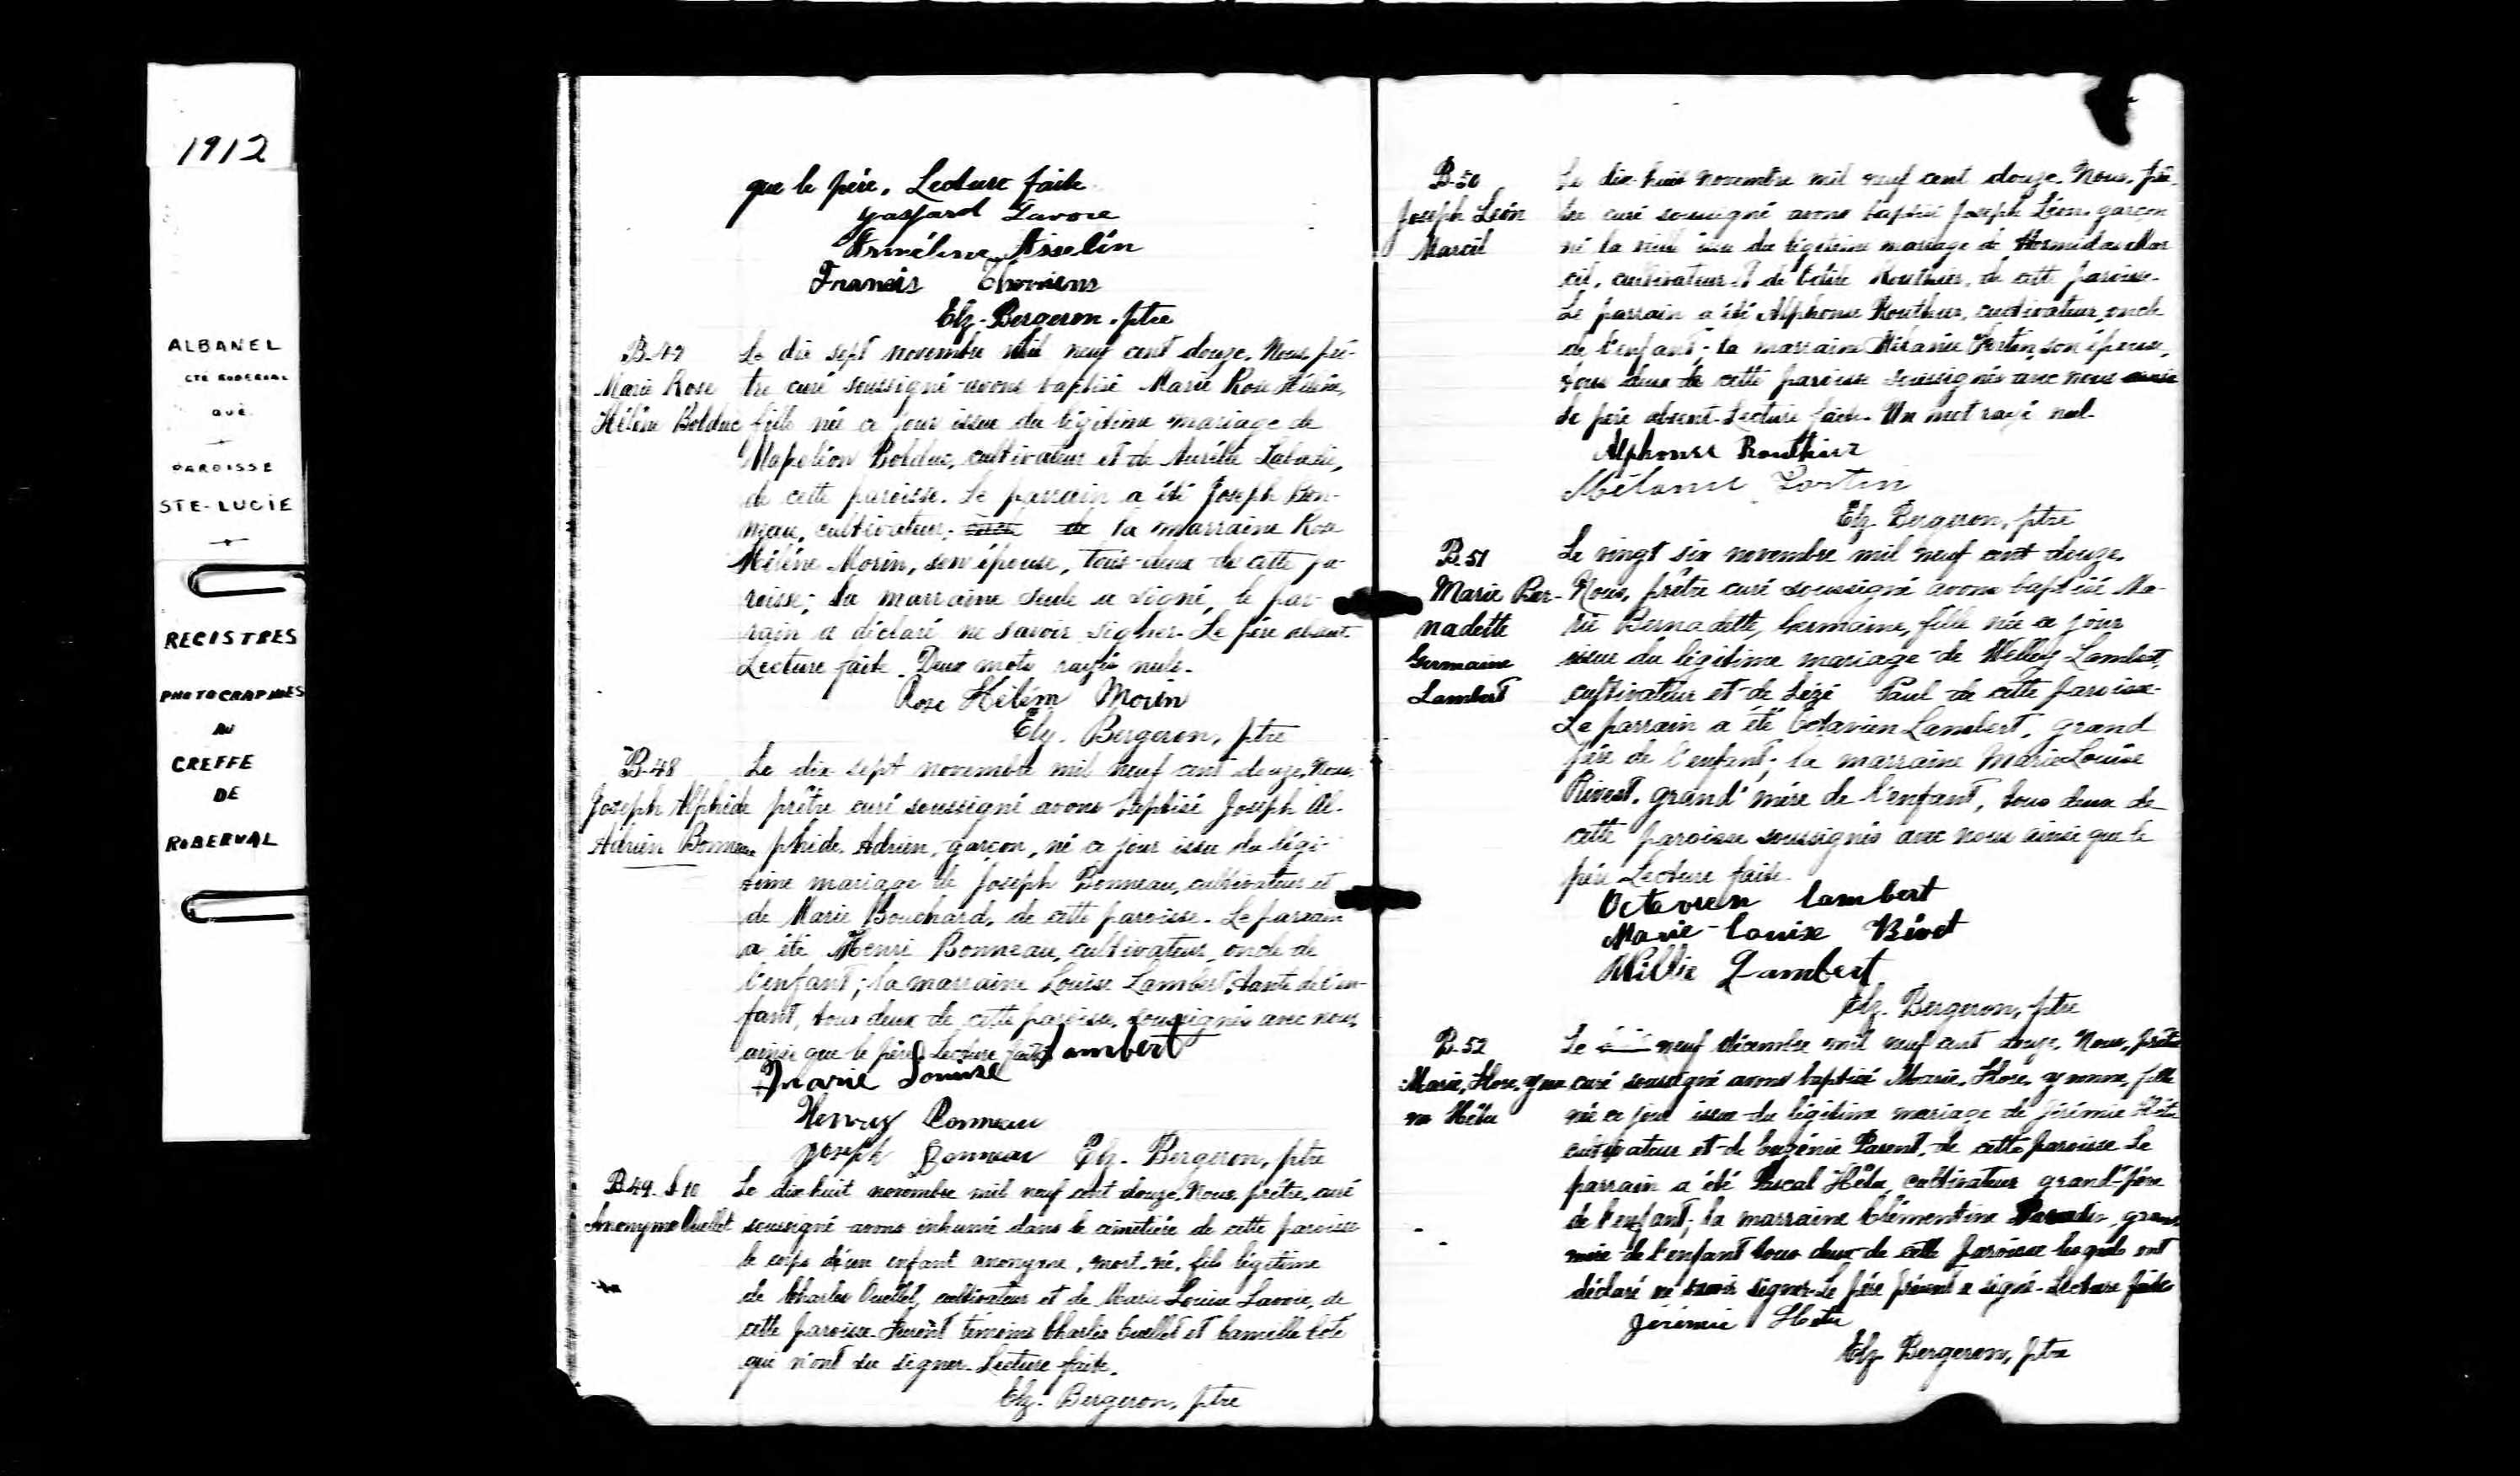 1912
ALBANEL
CTÉ ROBERVAL
QUÉ.
PAROISSE
STE-LUCIE
REGISTRES
PHOTOGRAPHIÉS
AU
GREFFE
DE
ROBERVAL
que le père. Lecture faite
Gaspard Lavoie
Arméline Asselin
Francis
Elz. Bergeron, ptre
B-47
Marie Rose
Hélène Bolduc
Le dix sept novembre mil neuf cent douze. Nous, prê-
tre curé soussigné avons baptisé Marie Rose Hélène,
fille née ce jour issue du légitime mariage de
Napoléon Bolduc, cultivateur et de Aurélie Labadie,
de cette paroisse. Le parrain a été Joseph Bon-
neau, cultivateur; la marraine Rose
Hélène Morin, son épouse, tous-deux de cette pa-
roisse; La marraine seule a signé, le par-
rain a déclaré ne savoir signer. Le père absent
Lecture faite. Deux mots rayés nuls.
Rose Hélèn Morin
Elz. Bergeron, ptre
B-48
Joseph Alphide
Adrien Bonneau
Le dix sept novembre mil neuf cent douze, Nous,
prêtre curé soussigné avons baptisé Joseph Al-
phide, Adrien, garçon, né ce jour issu du légi-
time mariage de Joseph Bonneau, cultivateur et
de Marie Bouchard, de cette paroisse. Le parrain
a été Henri Bonneau, cultivateur, oncle de
l'enfant; la marraine Louise Lambert, tante de l'en-
fant, tous deux de cette paroisse, soussignés avec nous,
ainsi que le père. Lecture faite
Marie Louise Lambert
Henry Bonneau
Joseph Bonneau Elz. Bergeron, ptre
B-49. S-10
Anonyme Ouellet
Le dix-huit novembre mil neuf cent douze. Nous, prêtre, curé
soussigné avons inhumé dans le cimetière de cette paroisse
le corps d'un enfant anonyme, mort-né, fils légitime
de Charles Ouellet, cultivateur et de Marie Louise Lavoie, de
cette paroisse. Furent témoins Charles Ouellet et Camille Côté
qui n'ont su signer. Lecture faite.
Elz. Bergeron, ptre
B-50
Joseph Léon
Marcil
Le dix-huit novembre mil neuf cent douze. Nous, prê-
tre curé soussigné avons baptisé Joseph Léon, garçon
né la veille issu du légitime mariage de Hermidas Mar
cil, cultivateur et de Routhier, de cette paroisse.
Le parrain a été Alphonse Routhier, cultivateur, oncle
de l'enfant; la marraine Mélanie Fortin, son épouse,
tous deux de cette paroisse soussignés avec nous
le père absent. Lecture faite. Un mot rayé nul.
Alphonse Routhier
Mélanie Fortin
Elz. Bergeron, ptre
B-51
Marie Ber-
nadette
Germaine
Lambert
Le vingt six novembre mil neuf cent douze.
Nous, prêtre curé soussigné avons baptisé Ma-
rie Bernadette, Germaine, fille née ce jour
issue du légitime mariage de Lambert,
cultivateur et de Paul de cette paroisse.
Le parrain a été Octavien Lambert, grand
père de l'enfant; la marraine Marie Louise
Rivest, grand'mère de l'enfant, tous deux de
cette paroisse soussignés avec nous ainsi que le
père Lecture faite.
Octavien lambert
Marie-louise
Willie Lambert
Elz. Bergeron, ptre
B-52
Marie, Flore, Yvon
ne Hétu
Le neuf décembre mil neuf cent douze. Nous, prêtre
curé soussigné avons baptisé Marie, Flore, Yvonne, fille
née ce jour issue du légitime mariage de Jérémie Hétu
cultivateur et de Eugénie Parent, de cette paroisse Le
parrain a été Pascal Hétu, cultivateur grand-père
de l'enfant; la marraine Clémentine grand
mère de l'enfant tous deux de cette paroisse lesquels ont
déclaré ne savoir signer. Le père présent a signé. Lecture faite
Jérémie Hétu
Elz. Bergeron, ptre